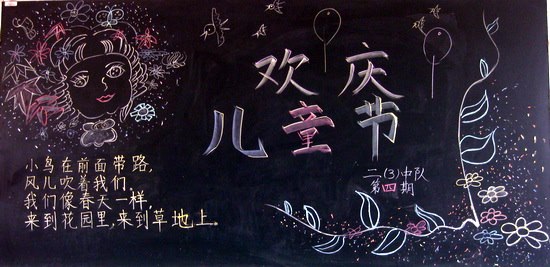 欢庆
儿童节
二(3)中队
第四期
小鸟在前面带路,
风儿吹着我们,
我们像春天一样,
来到花园里,来到草地上。